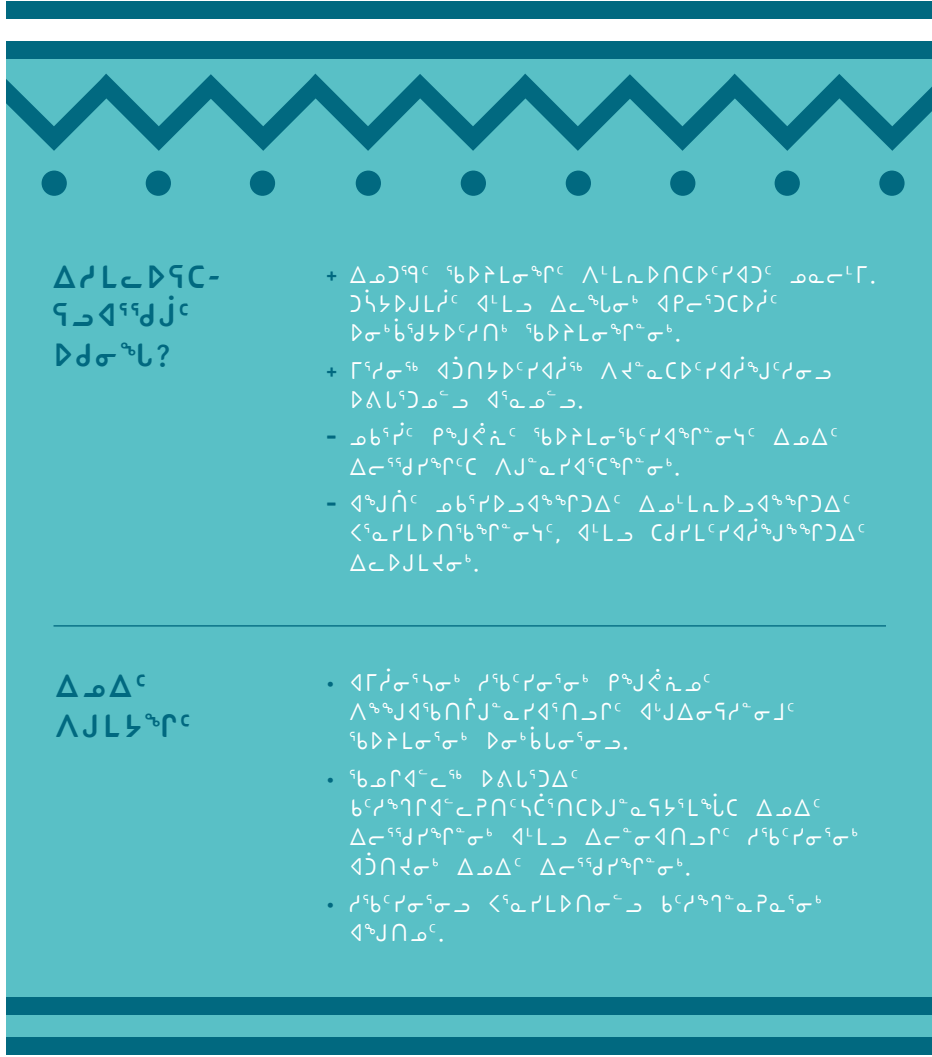 ᐃᓱᒪᓚᐅᕋᑕ-
ᕋᓗᐊᕐᖁᒑᑦ
ᐅᑯᓂᖓ?
+ ᐃᓄᑐᕿᑦ ᖃᐅᔨᒪᓂᖏᑦ ᐱᒻᒪᕆᐅᑎᑕᐅᑦᓯᐊᑐᑦ ᓄᓇᓕᒻᒥ.
ᑐᔮᔭᐅᒍᒪᓲᑦ ᐊᒻᒪᓗ ᐃᓚᖓᓂᒃ ᐊᑭᓕᕐᑐᑕᐅᓲᑦ
ᐅᓂᒃᑳᖁᔭᐅᑦᓱᑎᒃ ᖃᐅᔨᒪᓂᖏᓐᓂᒃ.
+ ᒥᕐᓱᓂᖅ ᐊᑑᑎᔭᐅᑦᓯᐊᓲᖅ ᐱᔪᓐᓇᑕᐅᑦᓯᐊᓲᖑᑦᓱᓂᓗ
ᐅᐱᒐᕐᑐᓄᓪᓗ ᐊᕐᓇᓄᓪᓗ.
- ᓄᑲᕐᓰᑦ ᑭᖑᐹᕇᑦ ᖃᐅᔨᒪᓂᖃᑦᓯᐊᖏᓐᓂᓴᑦ ᐃᓄᐃᑦ
ᐃᓕᕐᖁᓯᖏᑦᑕ ᐱᒍᓐᓇᓯᐊᕐᑕᖏᓐᓂᒃ.
- ᐊᖑᑏᑦ ᓄᑲᕐᓯᐅᓗᐊᖕᖏᑐᐃᑦ ᐃᓄᒻᒪᕆᐅᓗᐊᖕᖏᑐᐃᑦ
ᐸᕐᓇᓯᒪᐅᑎᖃᖏᓐᓂᓴᑦ, ᐊᒻᒪᓗ ᑕᑯᓯᒪᑦᓯᐊᓲᖑᖕᖏᑐᐃᑦ
ᐃᓚᐅᒍᒪᔪᓂᒃ.
ᐃᓄᐃᑦ
ᐱᒍᒪᔭᖏᑦ
• ᐊᒥᓲᓂᕐᓴᓂᒃ ᓱᖃᑦᓯᓂᕐᓂᒃ ᑭᖑᐹᕇᓄᑦ
ᐱᖕᖑᐊᖃᑎᒌᒍᓐᓇᓯᐊᕐᑎᓗᒋᑦ ᐊᒡᒍᐃᓂᕋᓱᓐᓂᒧᑦ
ᖃᐅᔨᒪᓂᕐᓂᒃ ᐅᓂᒃᑳᒐᓂᕐᓂᓗ.
• ᖃᓄᒋᐊᓪᓚᖅ ᐅᐱᒐᕐᑐᐃᑦ
ᑲᑦᓱᖐᒋᐊᓪᓚᕈᑎᑦᓴᑖᕐᑎᑕᐅᒍᓐᓇᕋᔭᕐᒪᖔᑕ ᐃᓄᐃᑦ
ᐃᓕᕐᖁᓯᖏᓐᓂᒃ ᐊᒻᒪᓗ ᐃᓕᓐᓂᐊᑎᓗᒋᑦ ᓱᖃᑦᓯᓂᕐᓂᒃ
ᐊᑑᑎᔪᓂᒃ ᐃᓄᐃᑦ ᐃᓕᕐᖁᓯᖏᓐᓂᒃ.
• ᓱᖃᑦᓯᓂᕐᓂᓗ ᐸᕐᓇᓯᒪᐅᑎᓂᓪᓗ ᑲᑦᓱᖐᓐᓇᕈᓇᕐᓂᒃ
ᐊᖑᑎᓄᑦ.